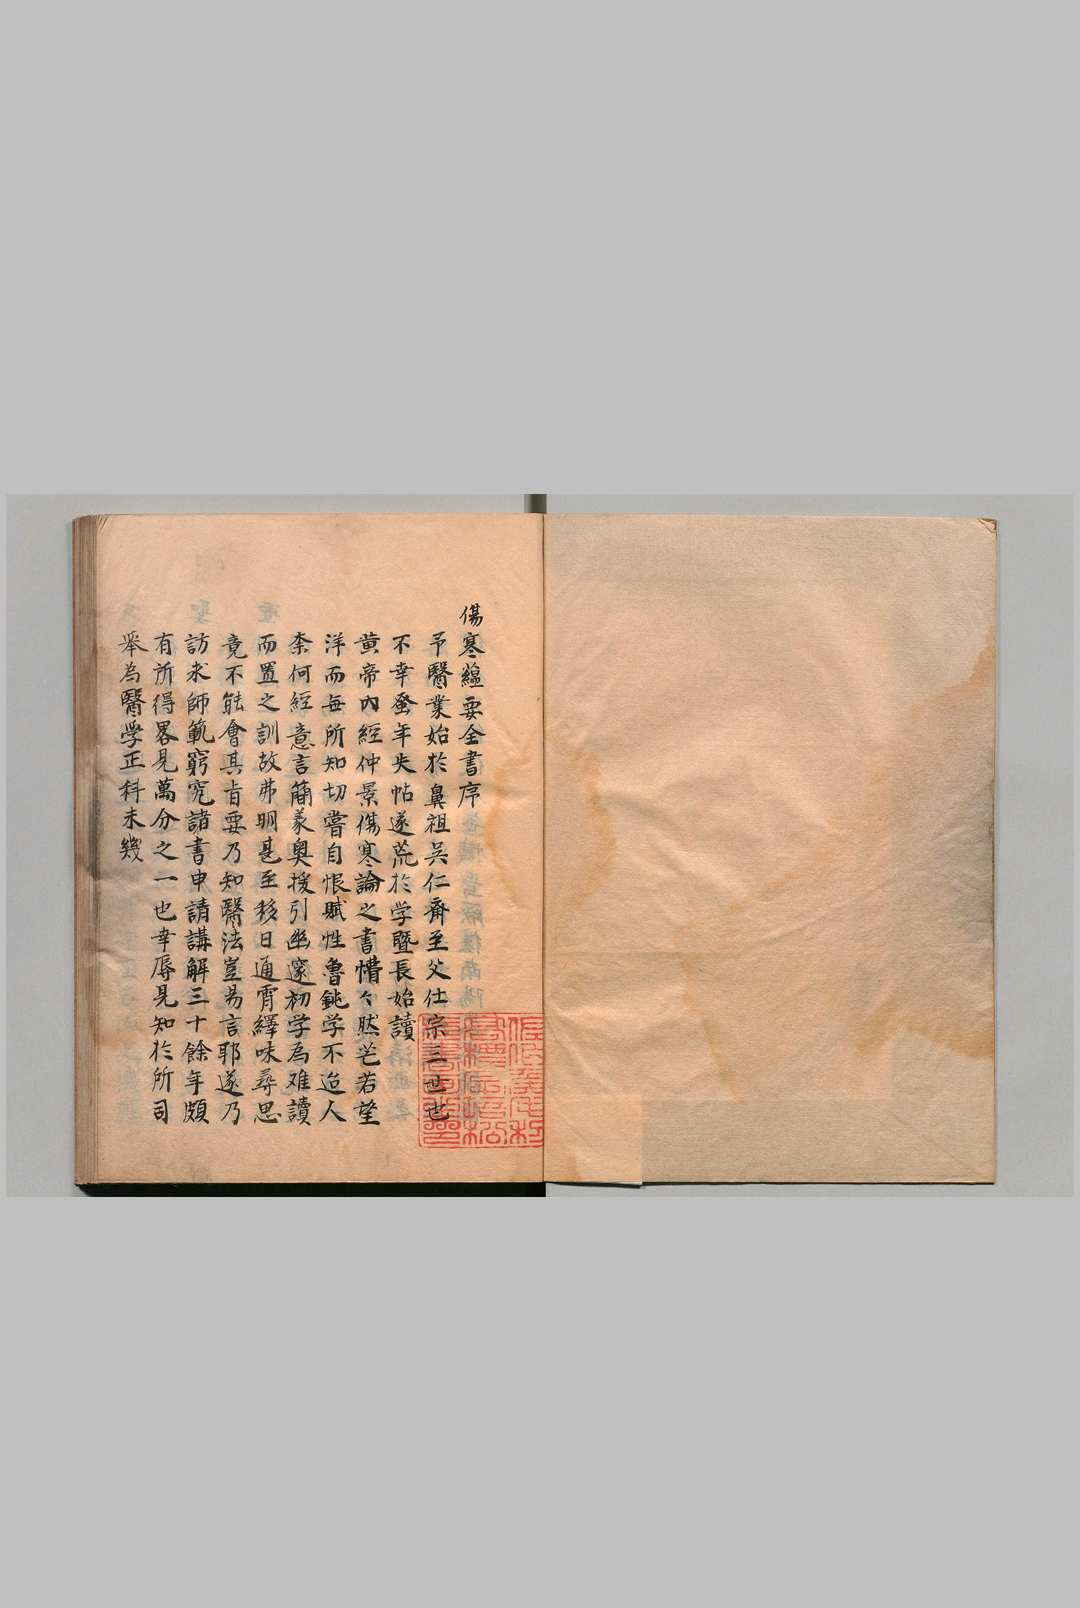 傷寒蘊要全書序
予醫業始於鼻祖吳仁齋至父仕宗三世也
不幸蚤年失怙遂荒於学暨長始讀
黃帝內經仲景傷寒論之書懵々然茫若望
洋而每所知切嘗自恨賦性魯鈍学不迨人
柰何經意言簡義奧援引幽邃初学為难讀
而置之訓故弗明甚至移日通宵繹味尋思
竟不能會其旨要乃知醫法豈易言耶遂乃
訪求師範窮究諸書申請講解三十餘年頗
有所得畧見萬分之一也幸辱見知於所司
舉為醫学正科未幾